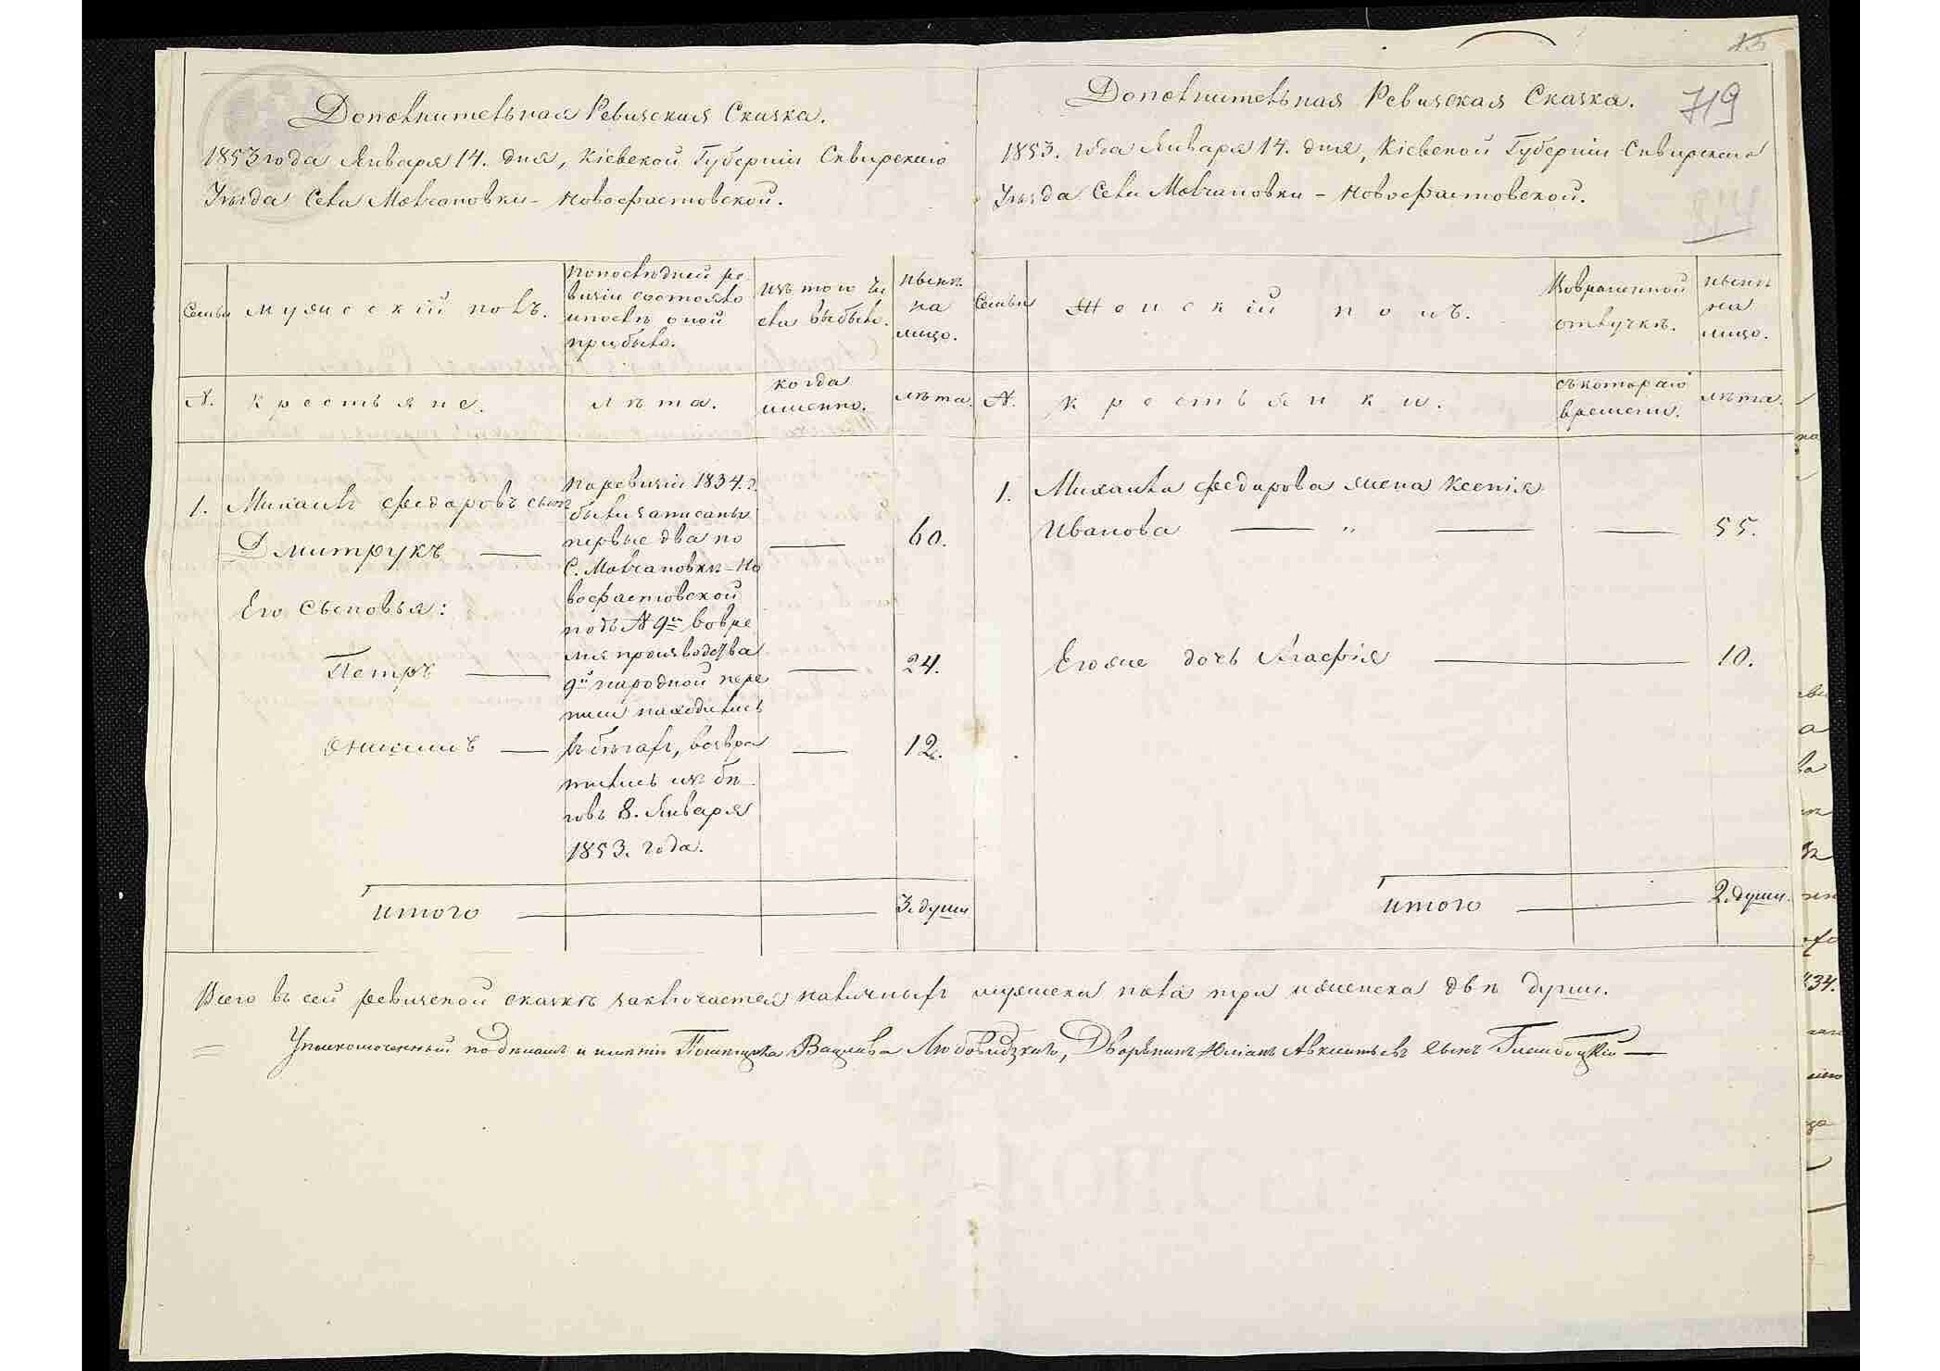 Дополнительная Ревизская Сказка.
1853 года Января 14. дня, Кіевской Губерніи Сквирскаго
Уѣзда Села Мовчановки - Новофастовской.
Семьи
Мужескій полъ.
По последней ре-
визіи состояло
и послѣ оной
прибыло.
Изъ того чи
сла выбыло.
Нынѣ
на
лицо.
№.
Крестьяне.
лѣта.
когда
именно.
лѣта.
1.
Михаилъ Федоровъ сынъ
Дмитрукъ
60.
Его сыновья:
Петръ
24.
Онисимъ
12.
По ревизіи 1834. г.
были записаны
первые два по
С. Мовчановки - Но
вофастовской
подъ № 9мъ во вре
мя производства
9й народной пере
писи находились
въ бѣгахъ, возвра
тились изъ бѣ
говъ 8. Января
1853. года.
Итого
3. души
Дополнительная Ревизская Сказка.
719
1853. года Января 14. дня, Кіевской Губерніи Сквирскаго
Уѣзда Села Мовчановки - Новофастовской.
Семьи
Женскій полъ.
Во временной
отлучкѣ.
Нынѣ
на
лицо.
№.
Крестьянки.
съ котораго
времени.
лѣта.
1.
Михаила Федорова жена Ксенія
Иванова
"
55.
Его же дочь Агафія
10.
Итого
2. души.
Всего въ сей ревизской сказкѣ заключается наличныхъ мужеска пола три и женска двѣ души.
Уполномоченный по дѣламъ и имѣнію Помѣщика Вацлава Любовидзкаго, Дворянинъ Юліанъ сынъ